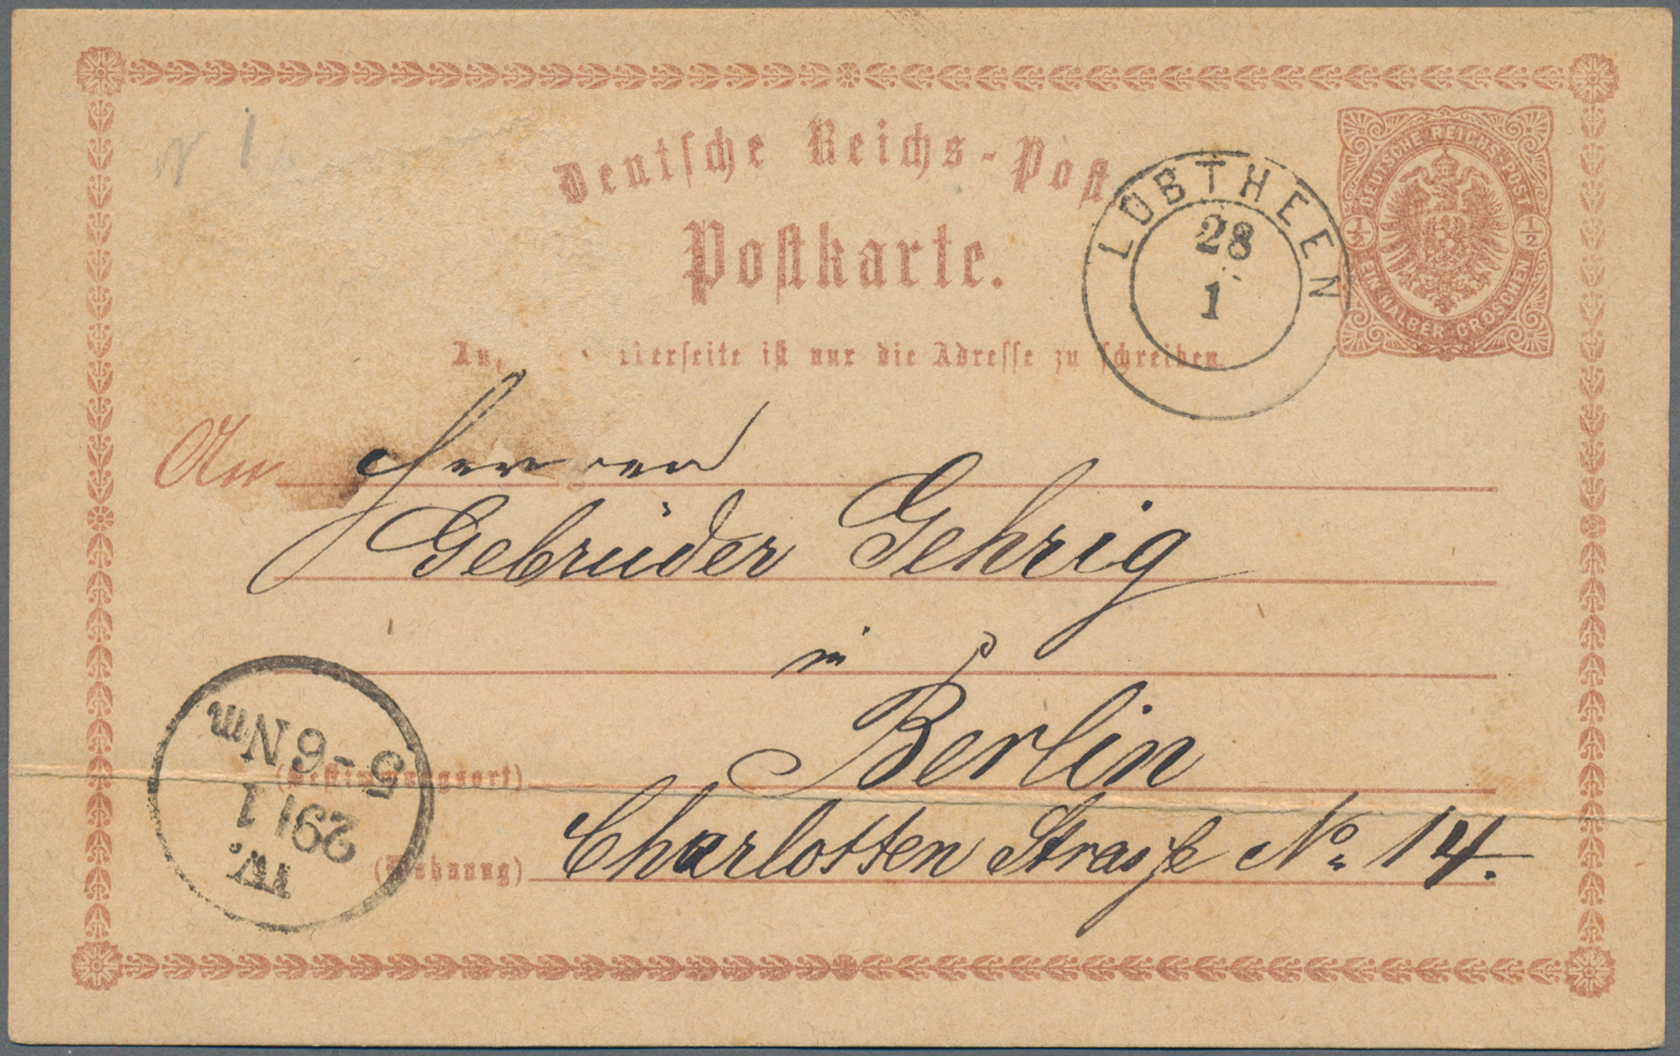 N 1
Deutsche Reichs-Post
Postkarte.
LÜBTHEEN
28
1
DEUTSCHE REICHS-POST
½ ½
EIN HALBER GROSCHEN
seite ist nur die Adresse zu schreiben.
An Herren
Gebrüder Gehrig
in
Berlin
(Bestimmungsort)
Charlotten Strasse No 14.
(Wohnung)
IV.
29 1 1
5-6 Nm